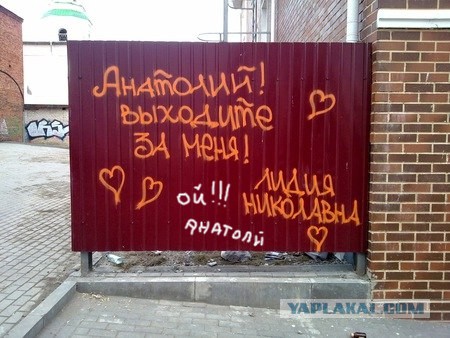 Анатолий!
выходите
за меня!
Лидия
Николавна
ой!!!
Анатолй
YAPLAKAL.COM